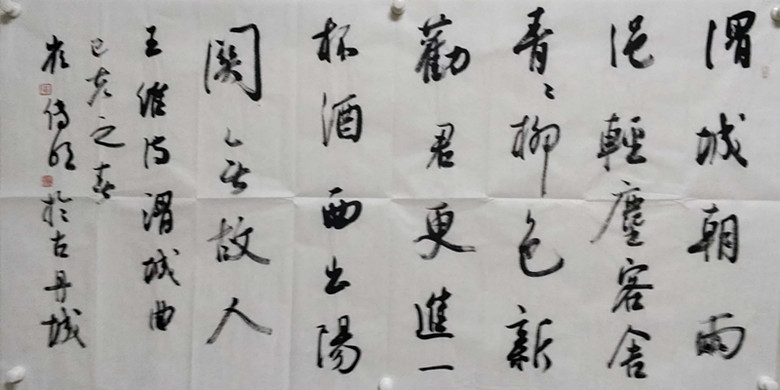 渭城朝雨
浥輕塵客舍
青々柳色新
勸君更進一
杯酒西出陽
關無故人
王維诗渭城曲
己亥之春
於古丹城